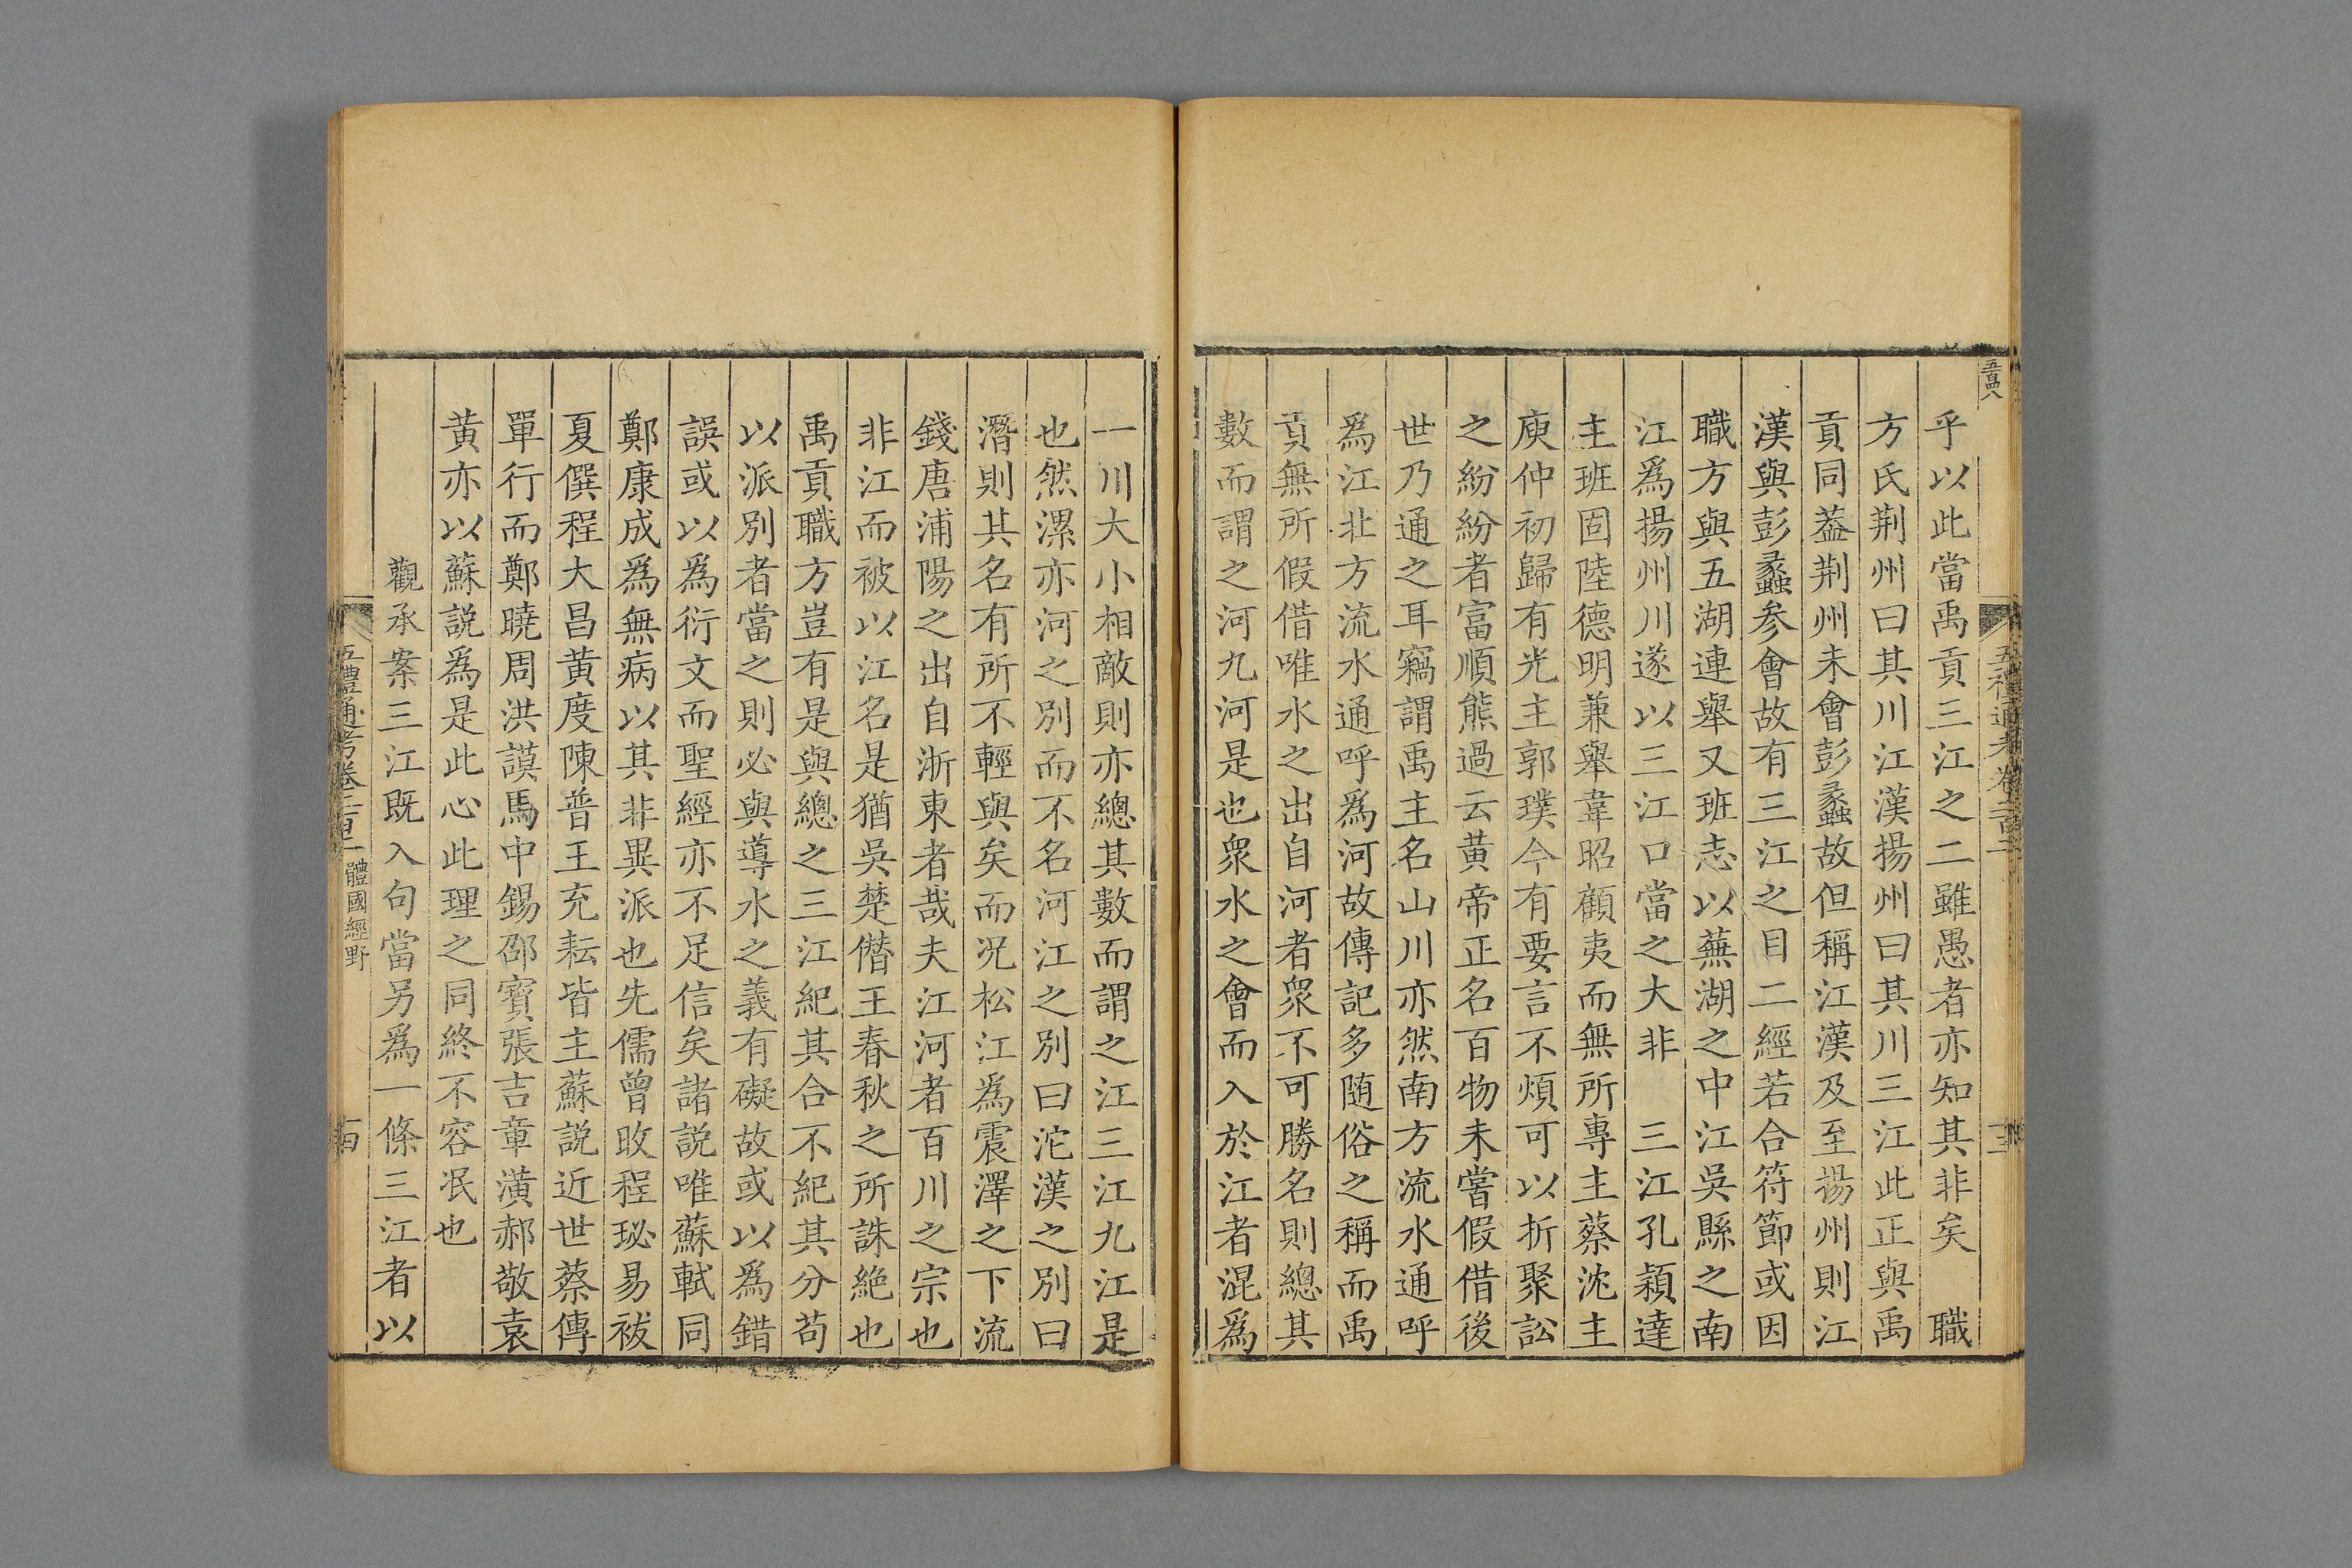 乎以此當禹貢三江之二雖愚者亦知其非矣　職
方氏荆州曰其川江漢揚州曰其川三江此正與禹
貢同葢荆州未會彭蠡故但稱江漢及至揚州則江
漢與彭蠡參會故有三江之目二經若合符節或因
職方與五湖連舉又班志以蕪湖之中江吳縣之南
江爲揚州川遂以三江口當之大非　三江孔穎達
主班固陸德明兼舉韋昭顧夷而無所專主蔡沈主
庾仲初歸有光主郭璞今有要言不煩可以折聚訟
之紛紛者富順熊過云黄帝正名百物未嘗假借後
世乃通之耳竊謂禹主名山川亦然南方流水通呼
爲江北方流水通呼爲河故傳記多随俗之稱而禹
貢無所假借唯水之出自河者衆不可勝名則總其
數而謂之河九河是也衆水之會而入於江者混爲
一川大小相敵則亦總其數而謂之江三江九江是
也然漯亦河之別而不名河江之別曰沱漢之別曰
潛則其名有所不輕與矣而况松江爲震澤之下流
錢唐浦陽之出自浙東者哉夫江河者百川之宗也
非江而被以江名是猶吳楚僭王春秋之所誅絶也
禹貢職方豈有是與總之三江紀其合不紀其分苟
以派別者當之則必與導水之義有礙故或以爲錯
誤或以爲衍文而聖經亦不足信矣諸說唯蘇軾同
鄭康成爲無病以其非異派也先儒曾旼程珌易祓
夏僎程大昌黄度陳普王充耘皆主蘇說近世蔡傳
單行而鄭曉周洪謨馬中錫邵寳張吉章潢郝敬袁
黄亦以蘇說爲是此心此理之同終不容泯也
觀承案三江既入句當另爲一條三江者以
五禮通考卷二百二　體國經野　十四